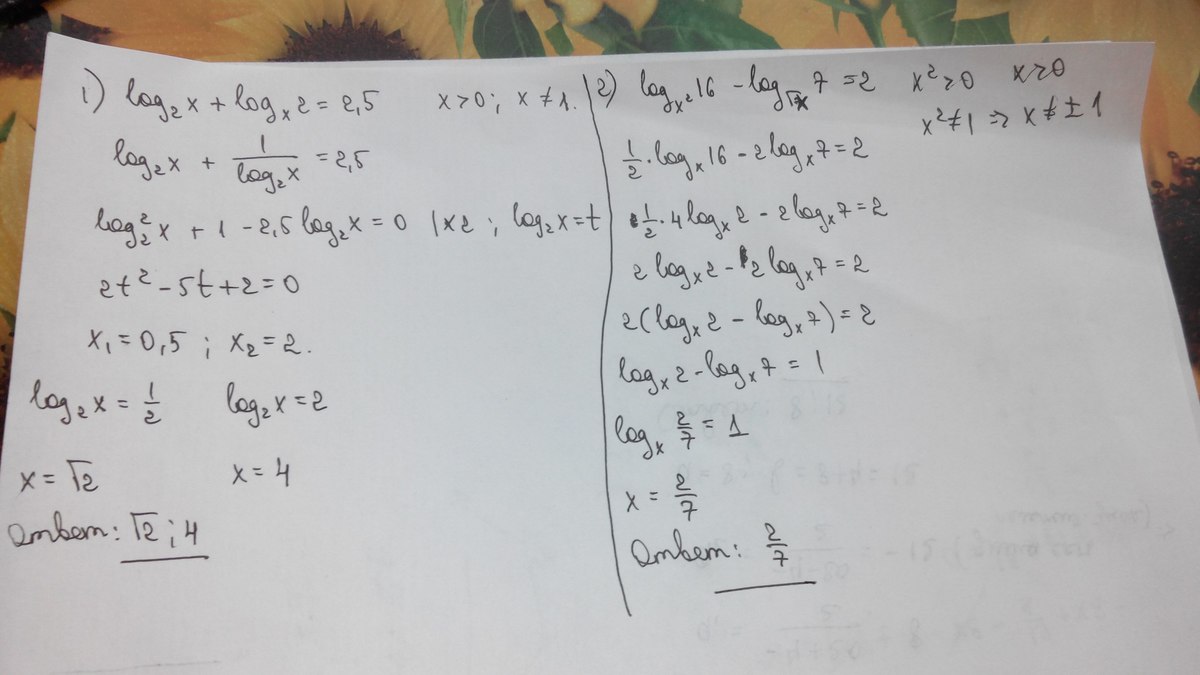 1) log₂x + logₓ2 = 2,5   x>0; x≠1.
log₂x + 1/log₂x = 2,5
log₂²x + 1 - 2,5 log₂x = 0 |×2 ; log₂x = t
2t² - 5t + 2 = 0
x₁ = 0,5 ; x₂ = 2.
log₂x = 1/2   log₂x = 2
x = √2   x = 4
Ответ: √2 ; 4
2) logₓ²16 - log√x 7 = 2   x²>0   x>0
x²≠1 => x≠±1
1/2 · logₓ16 - 2logₓ7 = 2
1/2 · 4logₓ2 - 2logₓ7 = 2
2logₓ2 - 2logₓ7 = 2
2(logₓ2 - logₓ7) = 2
logₓ2 - logₓ7 = 1
logₓ 2/7 = 1
x = 2/7
Ответ: 2/7